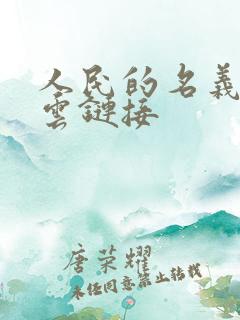 人民的名義
雲鏈接
唐荣耀
未经同意禁止转载